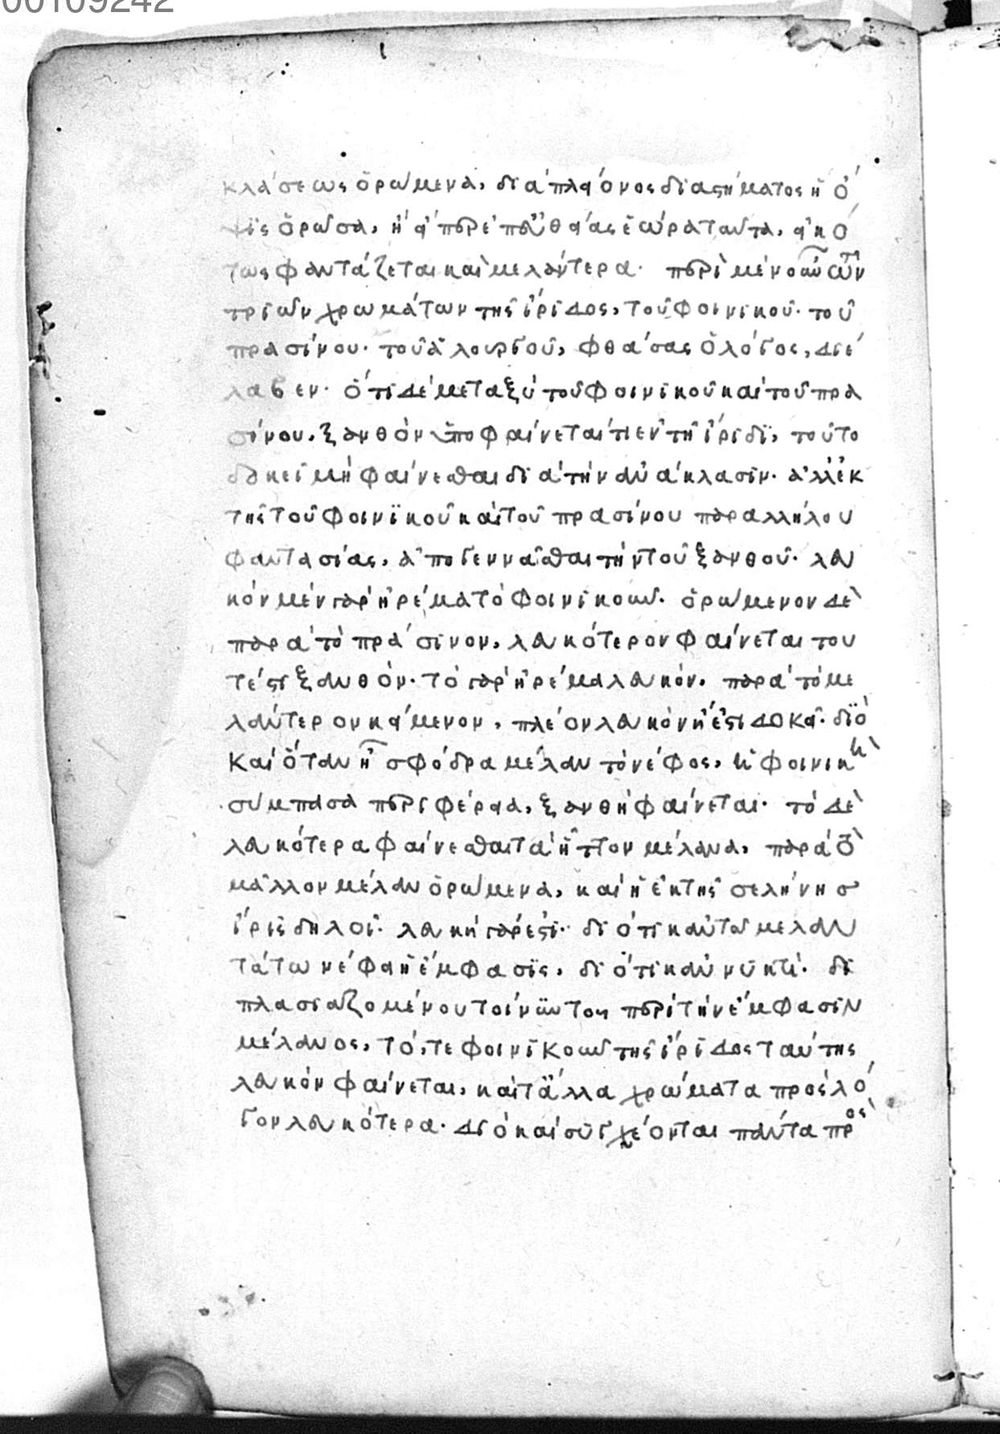 00109242
κλάσεως ὁρώμενα, διὰ πλείονος διαστήματος ἡ ὄ
ψις ὁρῶσα, ἢ εἴπερ ἐπ' εὐθείας ἑώρα ταῦτα, εἰκό
τως φαντάζεται καὶ μελάντερα· περὶ μὲν οὖν τῶν
τριῶν χρωμάτων τῆς ἴριδος, τοῦ φοινικοῦ· τοῦ
πρασίνου· τοῦ ἁλουργοῦ, φθάσας ὁ λόγος, διέ
λαβεν· ὅτι δὲ μεταξὺ τοῦ φοινικοῦ καὶ τοῦ πρα
σίνου, ξανθὸν ὑποφαίνεταί τι ἐν τῇ ἴριδι, τοῦτο
δοκεῖ μὴ φαίνεσθαι διὰ τὴν ἀνάκλασιν· ἀλλ' ἐκ
τῆς τοῦ φοινικοῦ καὶ τοῦ πρασίνου παραλλήλου
φαντασίας, ἀπογεννᾶσθαι τὴν τοῦ ξανθοῦ· λευ
κὸν μὲν γὰρ ἠρέμα τὸ φοινικοῦν· ὁρώμενον δὲ
παρὰ τὸ πράσινον, λευκότερον φαίνεται του
τέστι ξανθόν· τὸ γὰρ ἠρέμα λευκόν, παρὰ τὸ με
λάντερον κείμενον, πλέον λευκὸν ἤ ἐστι δοκεῖ· διὸ
καὶ ὅταν ᾖ σφόδρα μέλαν τὸ νέφος, ἡ φοινικῆ
σύμπασα περιφέρεια, ξανθὴ φαίνεται· τὸ δὲ
λευκότερα φαίνεσθαι τὰ ἧττον μέλανα, παρὰ τὸ
μᾶλλον μέλαν ὁρώμενα, καὶ ἡ ἐκ τῆς σελήνης
ἶρις δηλοῖ· λευκὴ γάρ ἐστι· διότι κἀν τῷ μελαν
τάτῳ νέφει ἡ ἔμφασις, διότι κἀν νυκτί· δι
πλασιαζομένου τοίνυν τοῦ περὶ τὴν ἔμφασιν
μέλανος, τό, τε φοινικοῦν τῆς ἴριδος ταύτης
λευκὸν φαίνεται, καὶ τἄλλα χρώματα πρὸς λό
γον λευκότερα· διὸ καὶ συγχέονται πάντα πρὸς